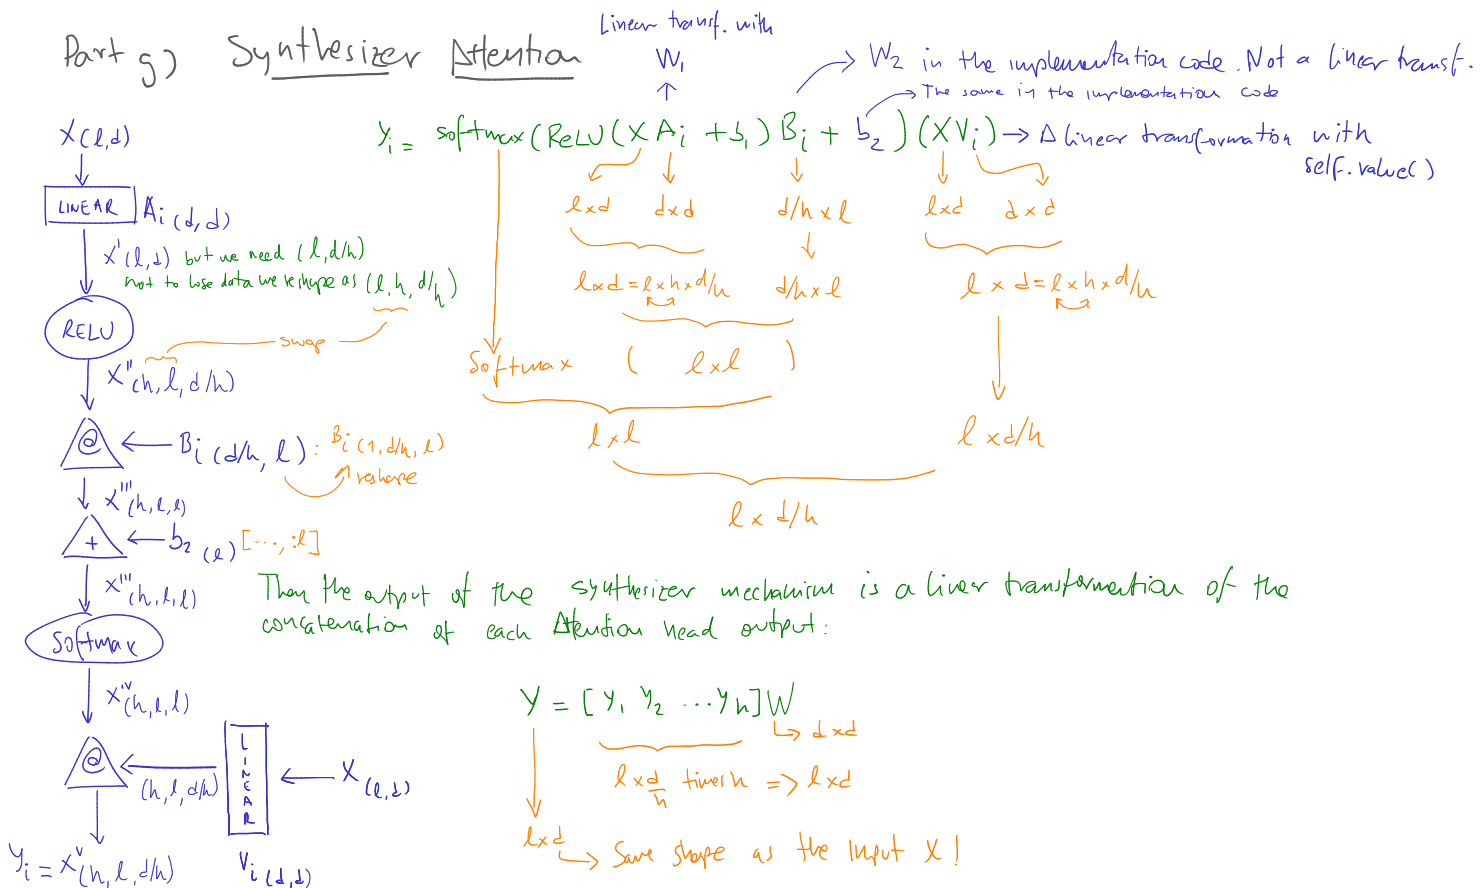 Part g) Synthesizer Attention
Linear transf. with
W1
W2 in the implementation code. Not a linear transf.
The same in the implementation code
Yi = softmax(ReLU(XAi + b1)Bi + b2)(XVi) → A linear transformation with
self.value()
X(l,d)
LINEAR Ai(d,d)
X'(l,d) but we need (l,d/h)
not to lose data we reshape as (l,h,d/h)
RELU
swap
X''(h,l,d/h)
@ ← Bi(d/h,l) : Bi(1,d/h,l)
reshape
X'''(h,l,l)
+ ← b2(l) [...,:l]
X'''(h,l,l)
softmax
X'v(h,l,l)
@ (h,l,d/h) LINEAR ← X(l,d)
Yi = Xv(h,l,d/h)
Vi(d,d)
l×d d×d d/h×l l×d d×d
l×d=l×h×d/h d/h×l l×d=l×h×d/h
Softmax ( l×l )
l×l l×d/h
l×d/h
Then the output of the synthesizer mechanism is a liner transformation of the
concatenation of each Attention head output:
Y = [Y1 Y2 ...Yh]W
d×d
l×d/h times h => l×d
l×d
Same shape as the input X!